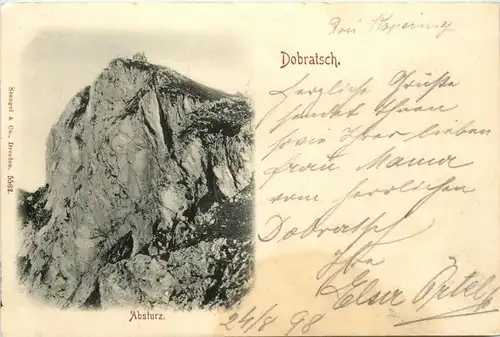 Dobratsch.
Herzliche Grüße
sendet Ihnen
sowie Ihrer lieben
Frau Mama
vom herrlichen
Dobratsch
Ihre
Else
24/8 98
Absturz.
Stengel & Co., Dresden. 5562.